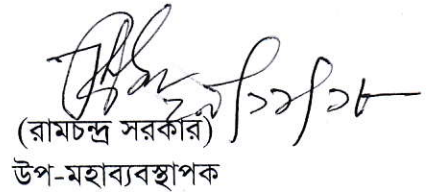 (রামচন্দ্র সরকার)
উপ-মহাব্যবস্থাপক